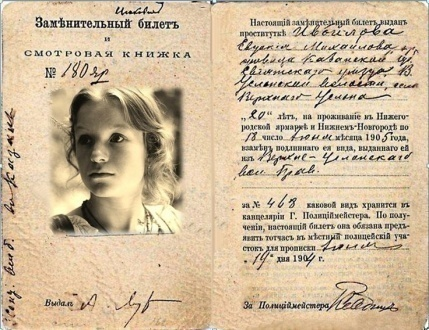 Замѣнительный билетъ
и
СМОТРОВАЯ КНИЖКА
№ 180 яр
Выдалъ
Настоящій замѣнительный билетъ выданъ
проституткѣ
Евгенія Михайлова
Казанской
уѣзда
волости, села
Верхняго Услона
„20“ лѣтъ, на проживаніе въ Нижего-
родской ярмаркѣ и Нижнемъ-Новгородѣ по
18 іюня мѣсяца 1905 года,
взамѣнъ подлиннаго ея вида, выданнаго ей
изъ Верхне-Услонскаго
вол. Прав.
за № 468 каковой видъ хранится въ
канцеляріи Г. Полиціймейстера. По полу-
ченіи, настоящій билетъ она обязана предъя-
вить тотчасъ въ мѣстный полицейскій участ-
окъ для прописки
„19“ дня 1904 г.
За Полиціймейстера